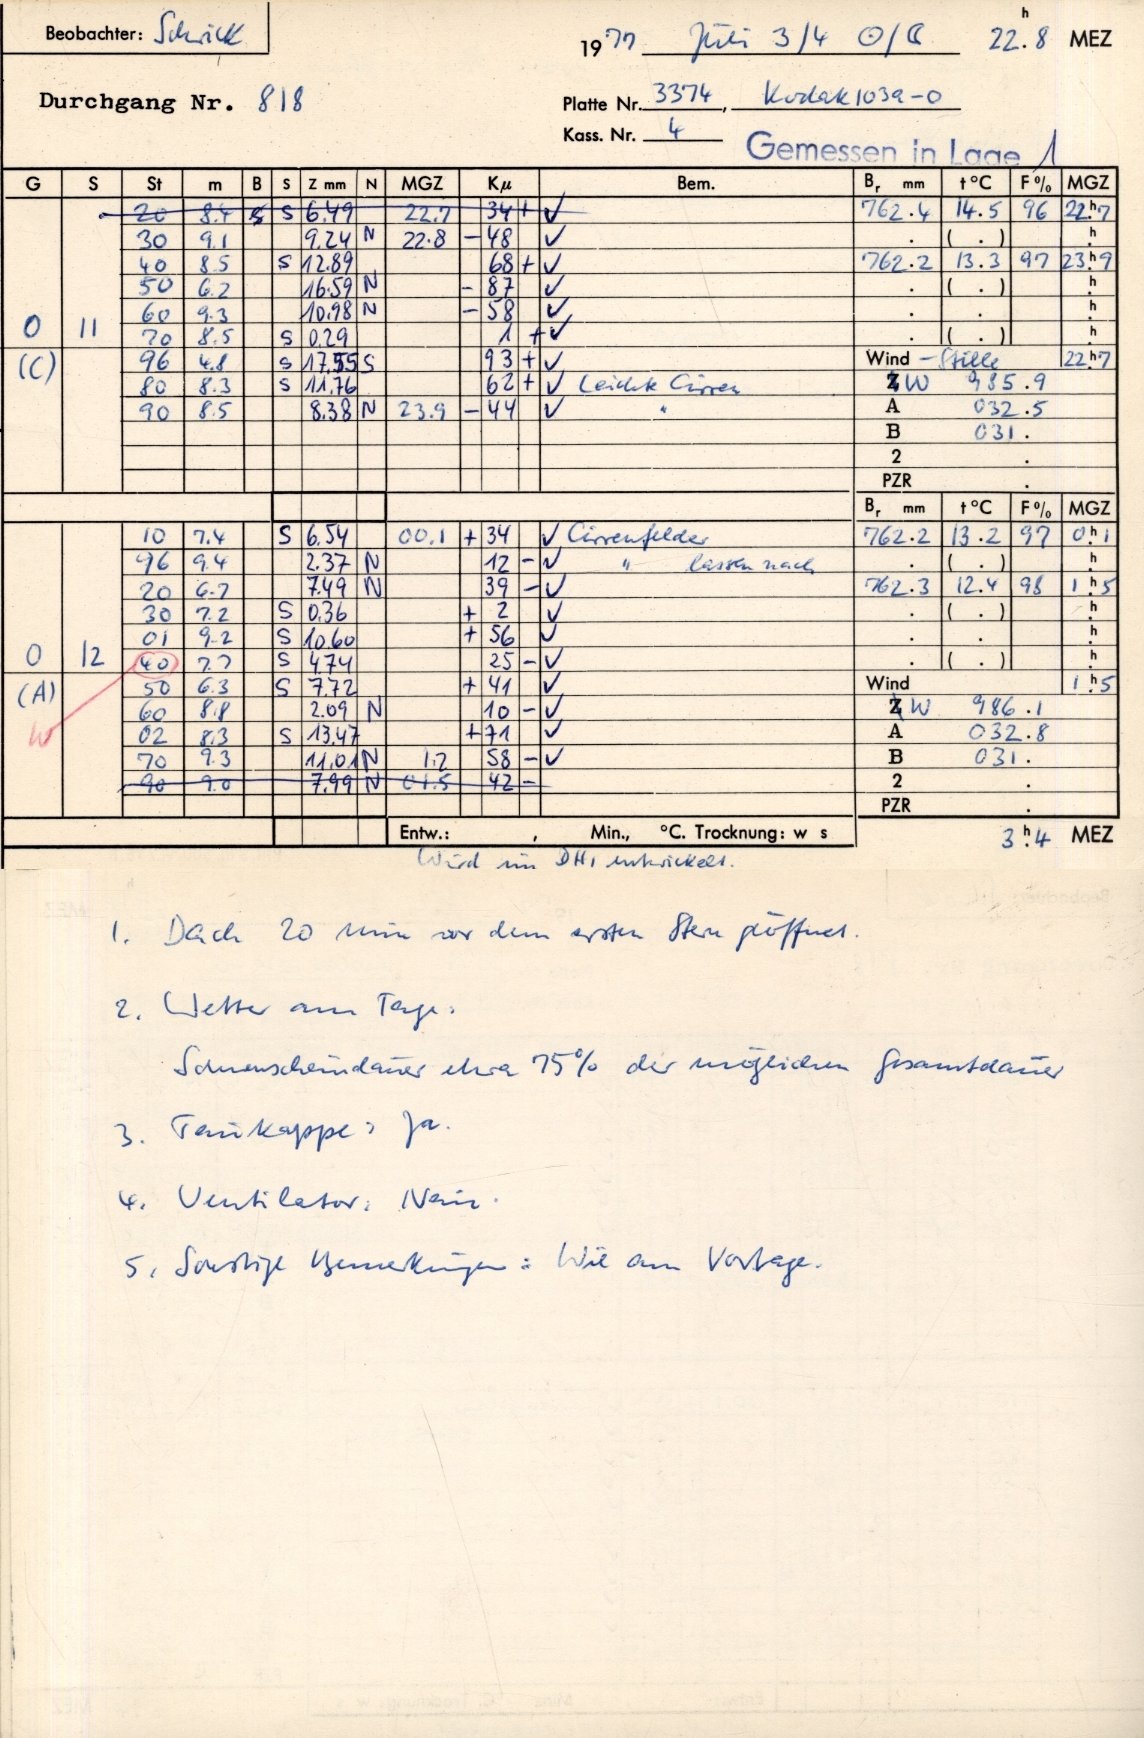 Beobachter: Schrick
1977 Juli 3/4 ☉/☾ 22.ʰ8 MEZ
Durchgang Nr. 818
Platte Nr. 3374, Kodak 103a-O
Kass. Nr. 4
Gemessen in Lage 1
G S St m B S Z mm N MGZ Kμ Bem. Bᵣ mm t°C F% MGZ
20 8.4 S S 6.49 22.7 34 + ✓ 762.4 14.5 96 22ʰ7
30 9.1 9.24 N 22.8 - 48 ✓ . ( . ) ʰ.
40 8.5 S 12.89 68 + ✓ 762.2 13.3 97 23ʰ9
50 6.2 16.59 N - 87 ✓ . ( . ) ʰ.
60 9.3 10.98 N - 58 ✓ . . ʰ.
0 11 70 8.5 S 0.29 1 + ✓ . ( . ) ʰ.
(C) 96 4.8 S 17.55 S 93 + ✓ Wind - Stille 22ʰ7
80 8.3 S 11.76 62 + ✓ Leichte Cirren W 985.9
90 8.5 8.38 N 23.9 - 44 ✓ " A 032.5
B 031.
2 .
PZR .
Bᵣ mm t°C F% MGZ
10 7.4 S 6.54 00.1 + 34 ✓ Cirrenfelder 762.2 13.2 97 0ʰ1
96 9.4 2.37 N 12 - ✓ " lassen nach . ( . ) ʰ.
20 6.7 7.49 N 39 - ✓ 762.3 12.4 98 1ʰ5
30 7.2 S 0.36 + 2 ✓ . ( . ) ʰ.
01 9.2 S 10.60 + 56 ✓ . . ʰ.
0 12 40 7.7 S 4.74 25 - ✓ . ( . ) ʰ.
(A) 50 6.3 S 7.72 + 41 ✓ Wind 1ʰ5
W 60 8.8 2.09 N 10 - ✓ W 986.1
02 8.3 S 13.47 + 71 ✓ A 032.8
70 9.3 11.01 N 1.2 58 - ✓ B 031.
90 9.0 7.99 N 01.5 42 - 2 .
PZR .
Entw.: , Min., °C. Trocknung: w s 3ʰ.4 MEZ
Wird im DHI entwickelt.
1. Dach 20 min vor dem ersten Stern geöffnet.
2. Wetter am Tage:
Sonnenscheindauer etwa 75% der möglichen Gesamtdauer
3. Taukappe: Ja.
4. Ventilator: Nein.
5. Sonstige Bemerkungen: Wie am Vortage.